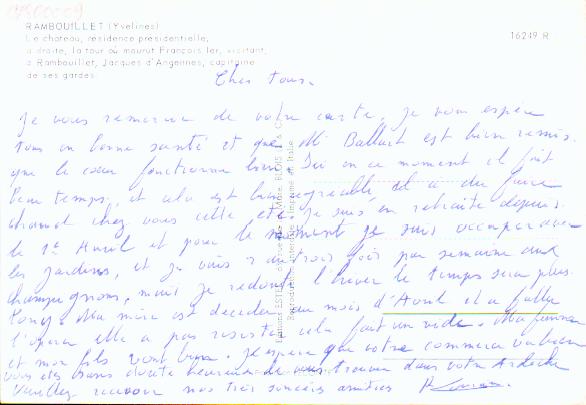 RAMBOUILLET (Yvelines)
Le château, résidence présidentielle,
à droite, la tour où mourut François Ier, visitant,
à Rambouillet, Jacques d'Angennes, capitaine
de ses gardes.
16249 R
Cher tous.
Je vous remercie de votre carte, je vous espère
tous en bonne santé et que Mr Ballart est bien remis.
que le cœur fonctionne bien. Ici en ce moment il fait
beau temps, et cela est bien agréable il a du faire
chaud chez vous cette été. je suis en retraite depuis
le 1er Avril et pour le moment je suis occupé avec
les jardins, et je vais 2 a trois fois par semaine aux
champignons, mais je redoute l'hiver le temps sera plus
long. Ma mère est décédée au mois d'Avril il a fallu
l'opérer elle a pas résisté cela fait un vide. Ma femme
et mon fils vont bien. Je espère que votre commerce va bien
vous êtes sans doute heureux de vous trouver dans votre Ardèche
Veuillez recevoir nos très sincères amitiés